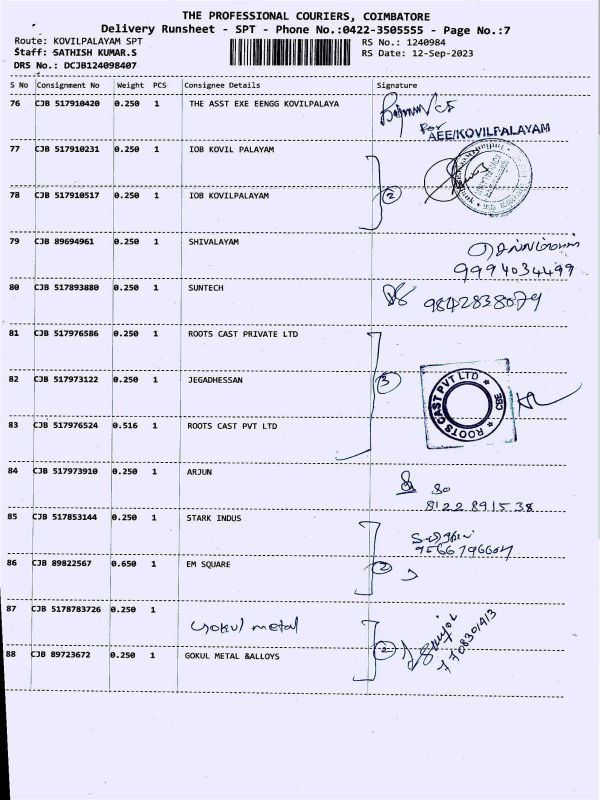 THE PROFESSIONAL COURIERS, COIMBATORE
Delivery Runsheet - SPT - Phone No.:0422-3505555 - Page No.:7
Route: KOVILPALAYAM SPT RS No.: 1240984
Staff: SATHISH KUMAR.S RS Date: 12-Sep-2023
DRS No.: DCJB124098407
S No Consignment No Weight PCS Consignee Details Signature
76 CJB 517910420 0.250 1 THE ASST EXE EENGG KOVILPALAYA
For
AEE/KOVILPALAYAM
77 CJB 517910231 0.250 1 IOB KOVIL PALAYAM
78 CJB 517910517 0.250 1 IOB KOVILPALAYAM 2
79 CJB 89694961 0.250 1 SHIVALAYAM
9994034499
80 CJB 517893880 0.250 1 SUNTECH 9842838079
81 CJB 517976586 0.250 1 ROOTS CAST PRIVATE LTD
82 CJB 517973122 0.250 1 JEGADHESSAN 3
ROOTS CAST PVT LTD CBE
83 CJB 517976524 0.516 1 ROOTS CAST PVT LTD
84 CJB 517973910 0.250 1 ARJUN
8122891538
85 CJB 517853144 0.250 1 STARK INDUS
9566796607
86 CJB 89822567 0.650 1 EM SQUARE 2
87 CJB 5178783726 0.250 1
Gokul metal
88 CJB 89723672 0.250 1 GOKUL METAL &ALLOYS 2